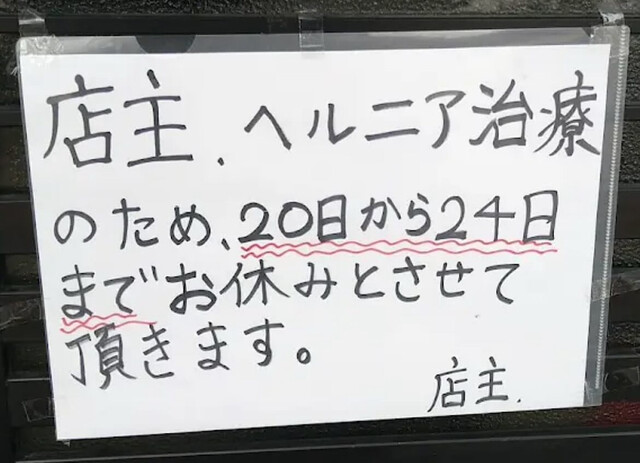 店主、ヘルニア治療
のため、20日から24日
までお休みとさせて
頂きます。
店主.